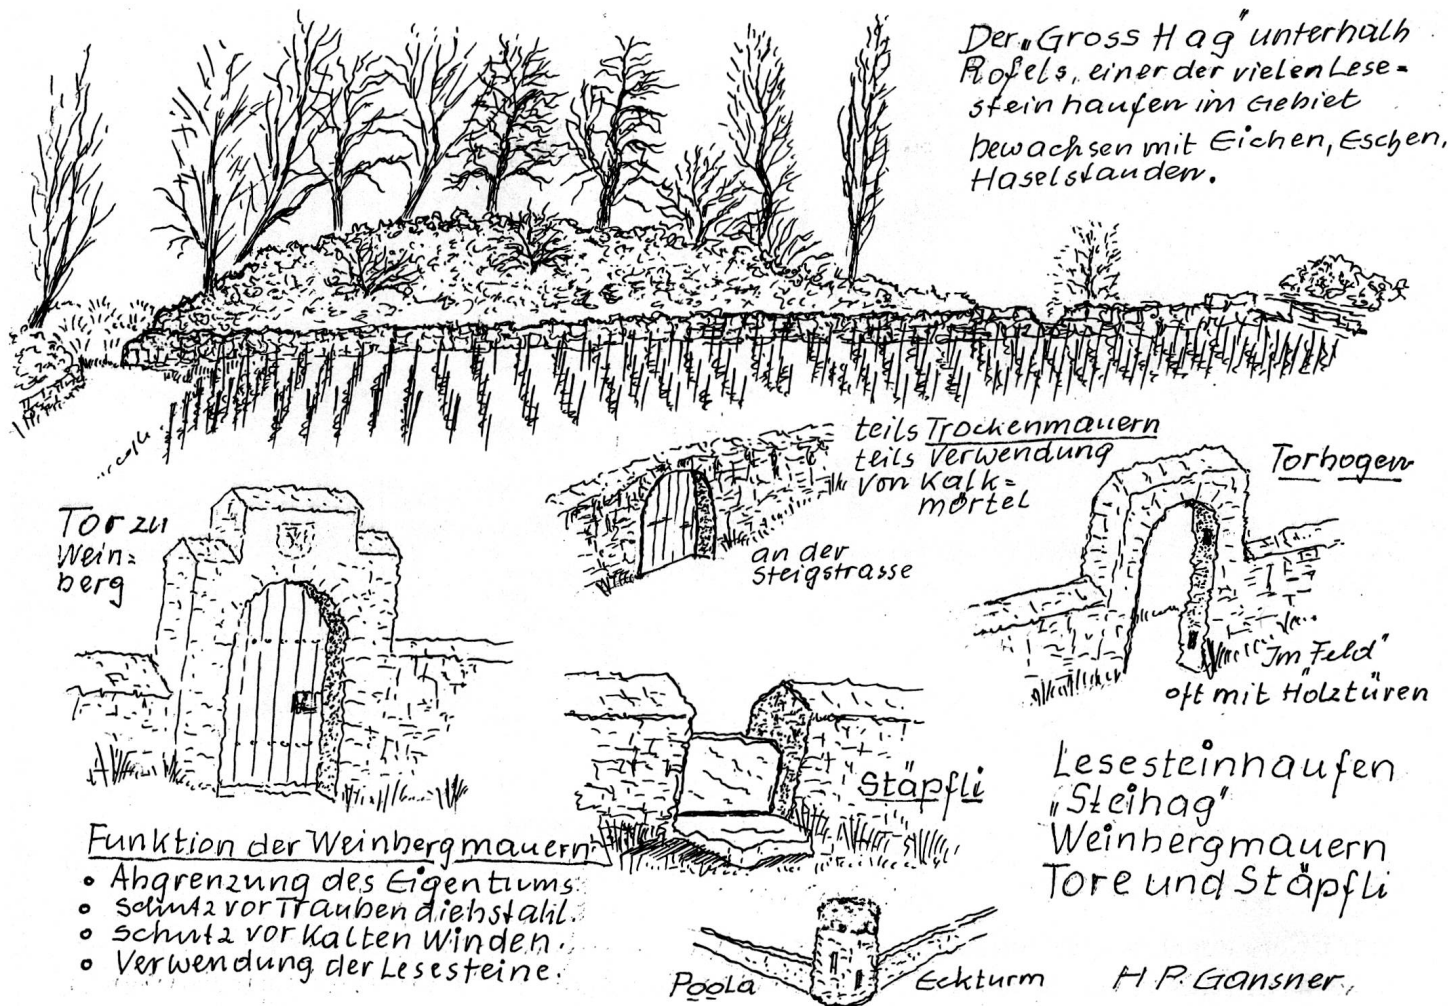 Der „Gross Hag" unterhalb
Rofels, einer der vielen Lese=
steinhaufen im Gebiet
bewachsen mit Eichen, Eschen,
Haselstauden.
teils Trockenmauern
teils Verwendung
von Kalk=
mörtel
an der
Steigstrasse
Torbogen
„Im Feld"
oft mit Holztüren
Tor zu
Wein=
berg
Stäpfli
Lesesteinhaufen
„Steihag"
Weinbergmauern
Tore und Stäpfli
Funktion der Weinbergmauern:
• Abgrenzung des Eigentums.
• Schutz vor Traubendiebstahl.
• Schutz vor Kalten Winden.
• Verwendung der Lesesteine.
Poola
Eckturm
H P. Gansner